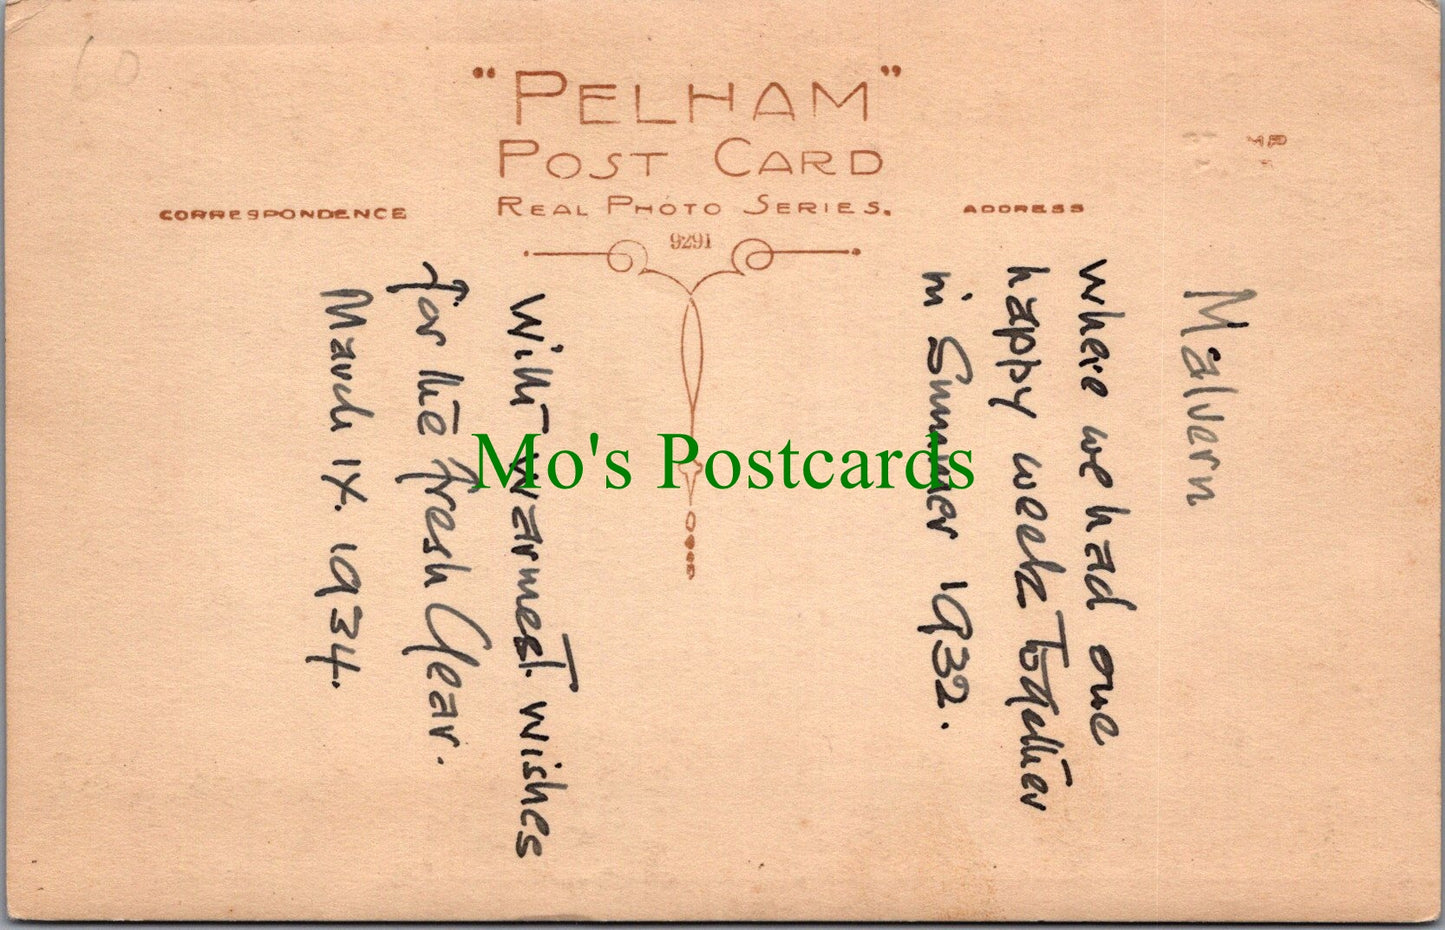 60
"PELHAM"
POST CARD
REAL PHOTO SERIES.
CORRESPONDENCE
ADDRESS
9291
Malvern
where we had one
happy week Together
in Summer 1932.
With warmest wishes
for the fresh Year.
March IX. 1934.
Mo's Postcards